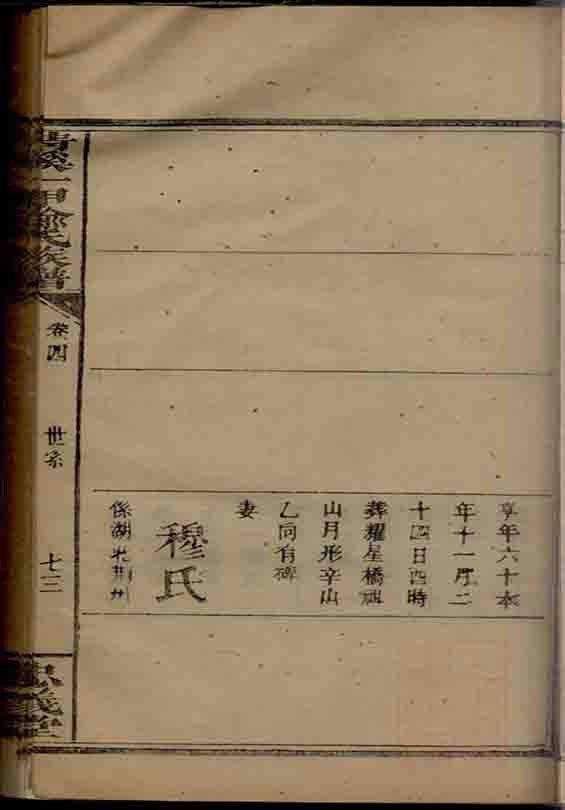 享年六十本
年十一月二
十四日酉時
葬耀星橋祖
山月形辛山
乙向有碑
妻
穆氏
係湖北荊州
一甲 氏族譜
卷四
世系
七三
義堂